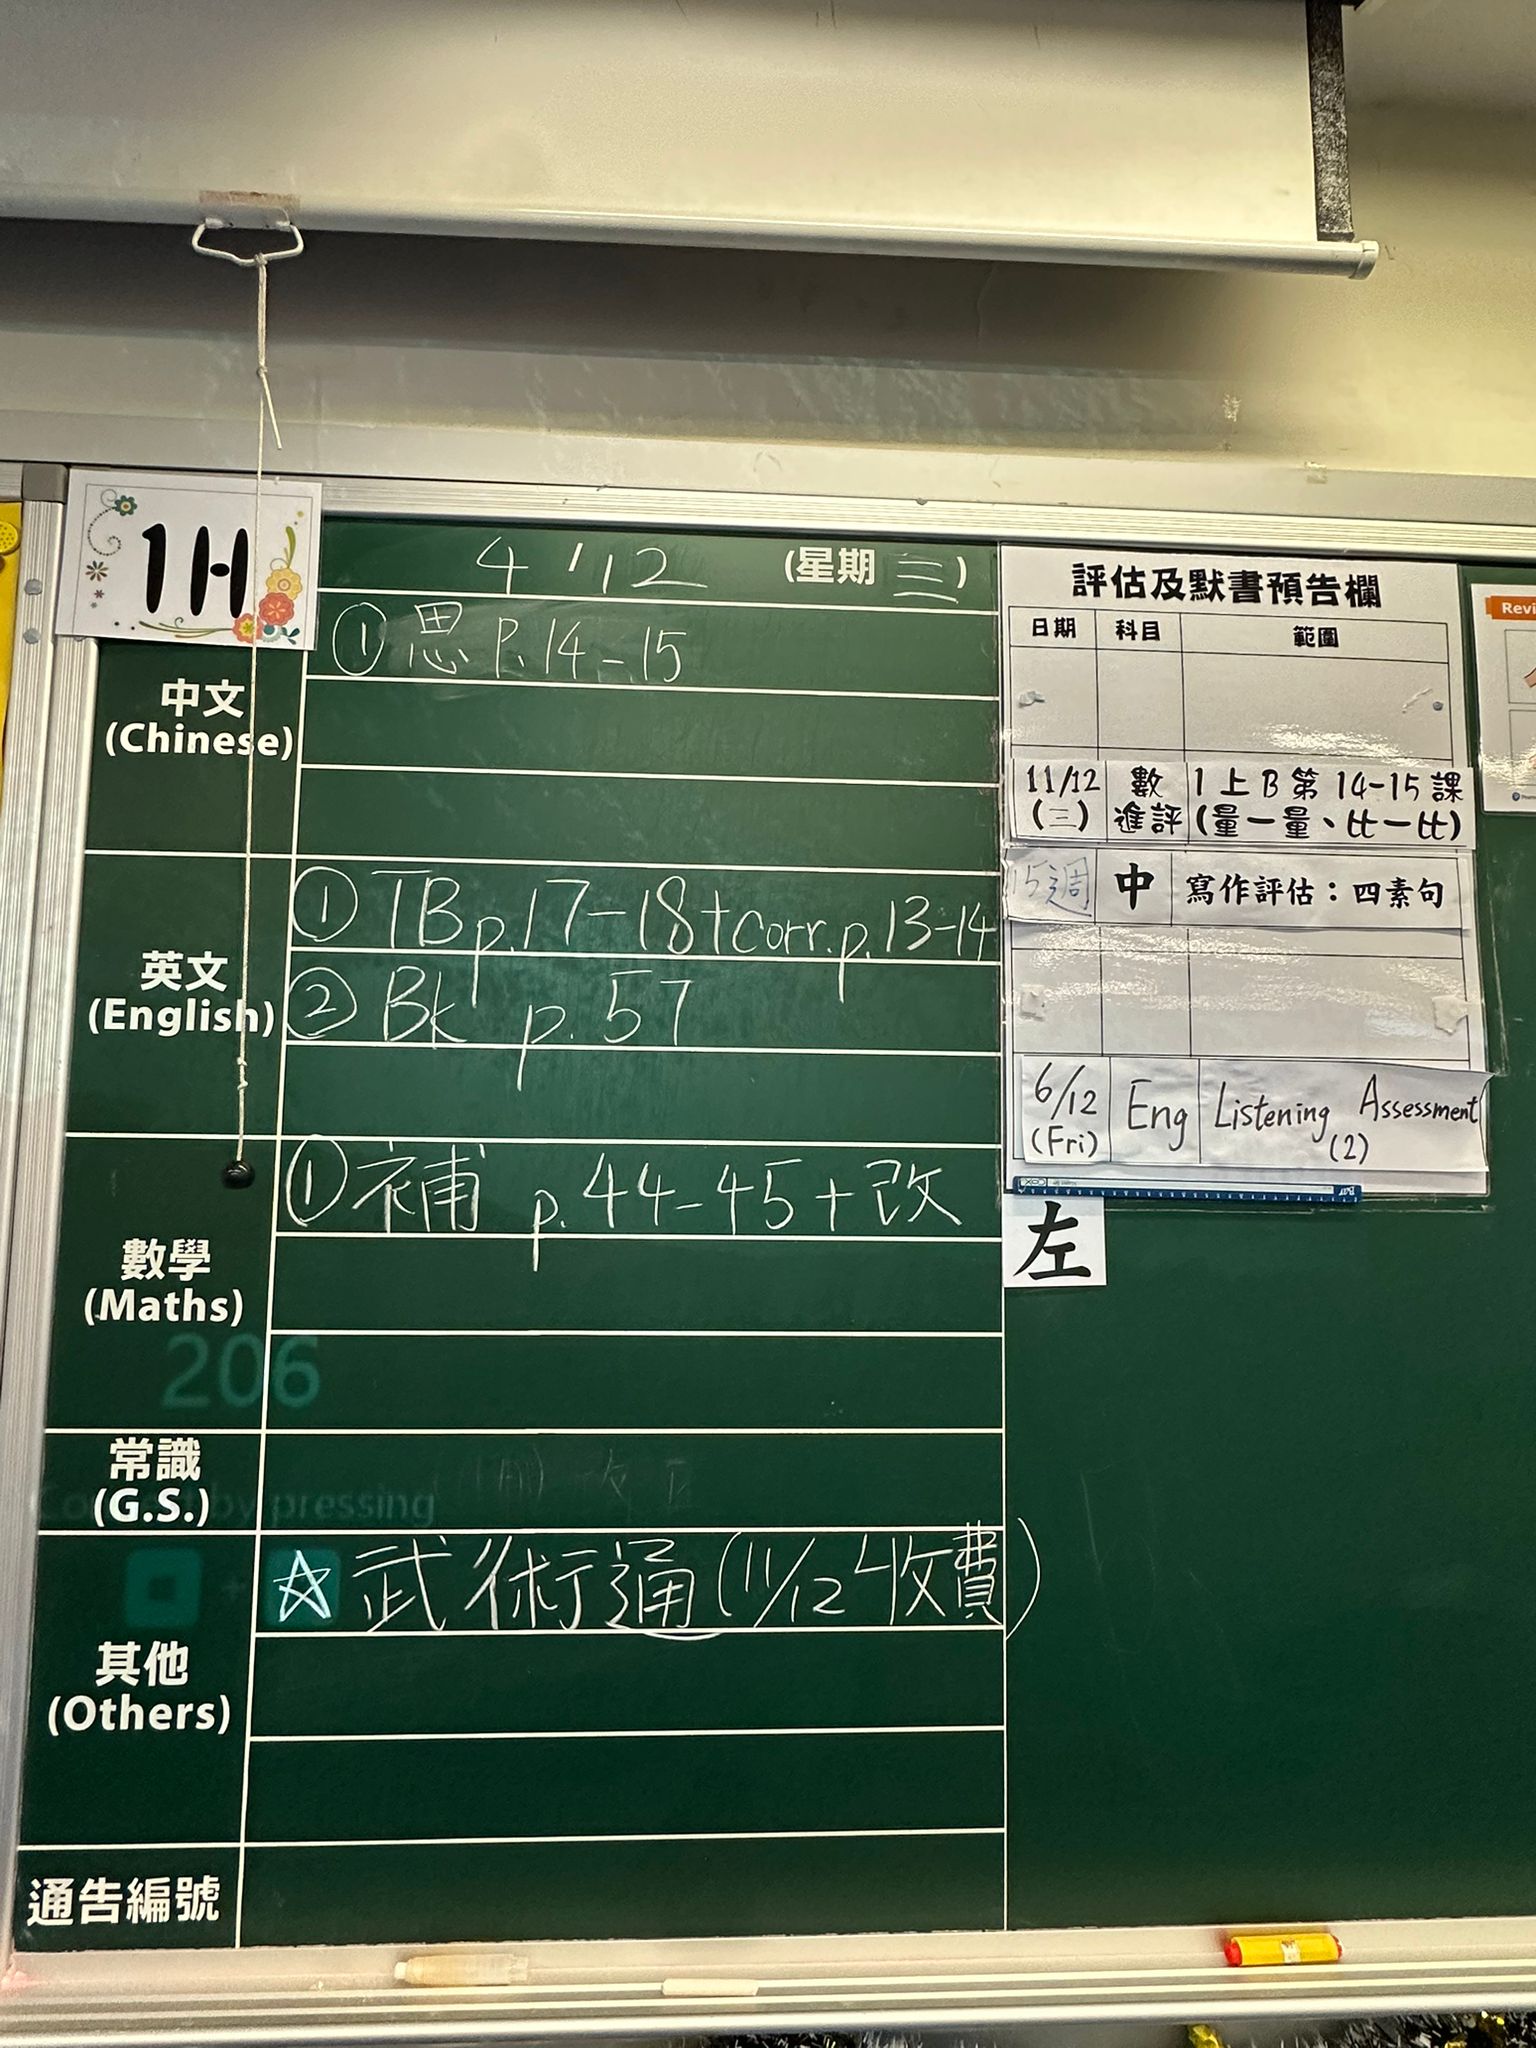 1H
4/12 (星期三)
中文
(Chinese)
① 思 P.14-15
英文
(English)
① TB p.17-18+corr.p.13-14
② Bk p.57
數學
(Maths)
① 補 p.44-45+改
206
常識
(G.S.)
by pressing
其他
(Others)
☆ 武術通(11/12收費)
通告編號
評估及默書預告欄
日期 科目 範圍
11/12 數 1上B第14-15課
(三) 進評 (量一量、比一比)
15週 中 寫作評估：四素句
6/12 Eng Listening Assessment
(Fri) (2)
左
Revi